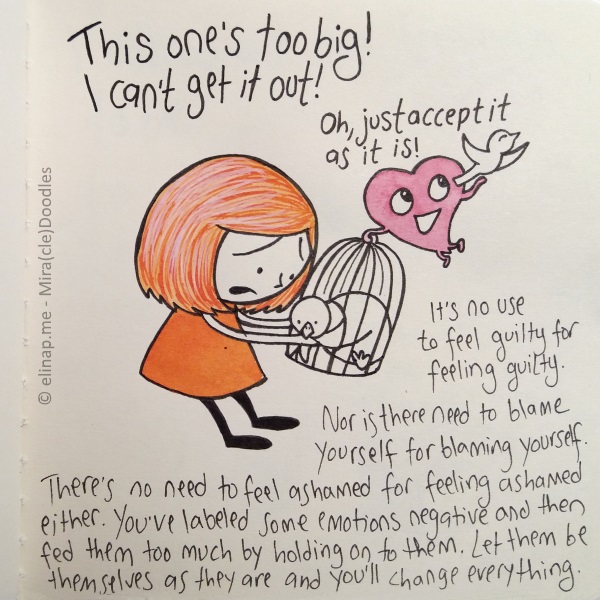 This one's too big!
I can't get it out!
Oh, just accept it
as it is!
© elinap.me - Mira(cle)Doodles
It's no use
to feel guilty for
feeling guilty.
Nor is there need to blame
yourself for blaming yourself.
There's no need to feel ashamed for feeling ashamed
either. You've labeled some emotions negative and then
fed them too much by holding on to them. Let them be
themselves as they are and you'll change everything.